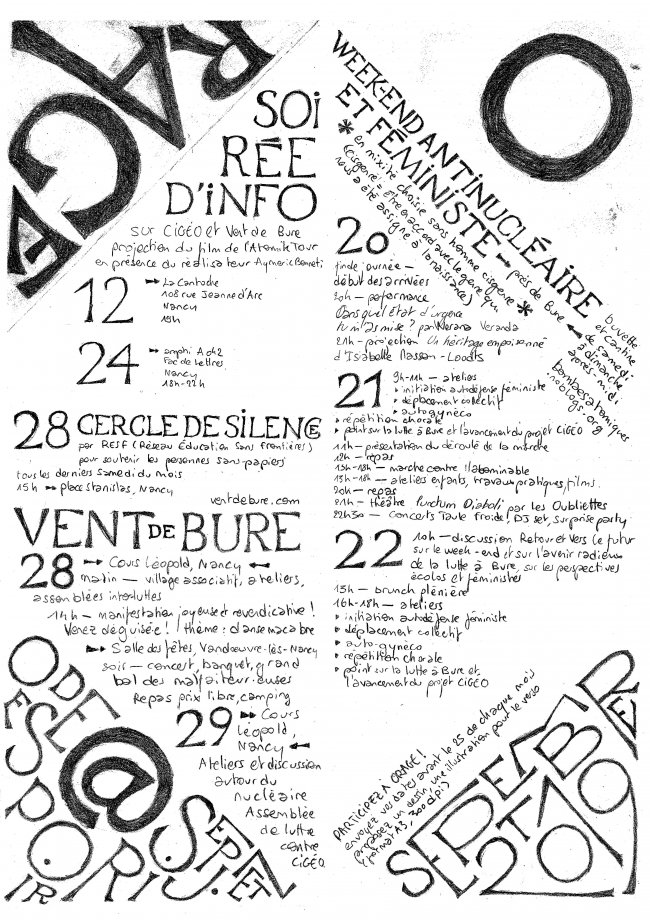 O
RAGE
SOI
RÉE
D'INFO
sur CIGÉO et Vent de Bure
projection du film de l'Atomik Tour
en présence du réalisateur Aymeric Bonneti
12
La Cantoche
108 rue Jeanne d'Arc
Nancy
19h
24
amphi A042
Fac de Lettres
Nancy
18h-22h
28 CERCLE DE SILENCE
par RESF (Réseau Éducation Sans Frontières)
pour soutenir les personnes sans-papiers
tous les derniers samedi du mois
15h place Stanislas, Nancy
ventdebure.com
VENT DE BURE
28 Cours Léopold, Nancy
matin — village associatif, ateliers,
assemblées interluttes
14h — manifestation joyeuse et revendicative !
Venez déguisé·e ! thème : danse macabre
Salle des fêtes, Vandœuvre-lès-Nancy
soir — concert, banquet, grand
bal des malfaiteur·euses
Repas prix libre, camping
29 Cours
Léopold,
Nancy
Ateliers et discussion
autour du
nucléaire
Assemblée
de lutte
contre
CIGÉO
WEEK-END ANTINUCLÉAIRE
ET FÉMINISTE
près de Bure
* en mixité choisie sans homme cisgenre *
(cisgenre = être en accord avec le genre qui
nous a été assigné à la naissance)
buvette
et cantine
de samedi
à dimanche
après-midi
bombesatomiques
.noblogs.org
20
fin de journée —
début des arrivées
20h — performance
Dans quel état d'urgence
tu m'as mise ? par Nerana Veranda
21h — projection Un héritage empoisonné
d'Isabelle Masson-Loodts
21
9h-11h — ateliers
initiation autodéfense féministe
déplacement collectif
autogynéco
répétition chorale
point sur la lutte à Bure et l'avancement du projet CIGÉO
11h — présentation du déroulé de la marche
12h — repas
13h-18h — marche contre l'abominable
13h-18h — ateliers enfants, travaux pratiques, films.
20h — repas
21h — théâtre Punctum Diaboli par les Oubliettes
22h30 — Concerts Taule froide ! DJ set, surprise party
22
10h — discussion Retour et Vers le futur
sur le week-end et sur l'avenir radieux
de la lutte à Bure, sur les perspectives
écolos et féministes
13h — brunch plénière
16h-18h — ateliers
initiation autodéfense féministe
déplacement collectif
auto-gynéco
répétition chorale
point sur la lutte à Bure et
l'avancement du projet CIGÉO
PARTICIPEZ À ORAGE !
envoyez vos dates avant le 25 de chaque mois
proposez un dessin, une illustration pour le verso
(format A3, 300 dpi)
SEPTEMBRE
2019